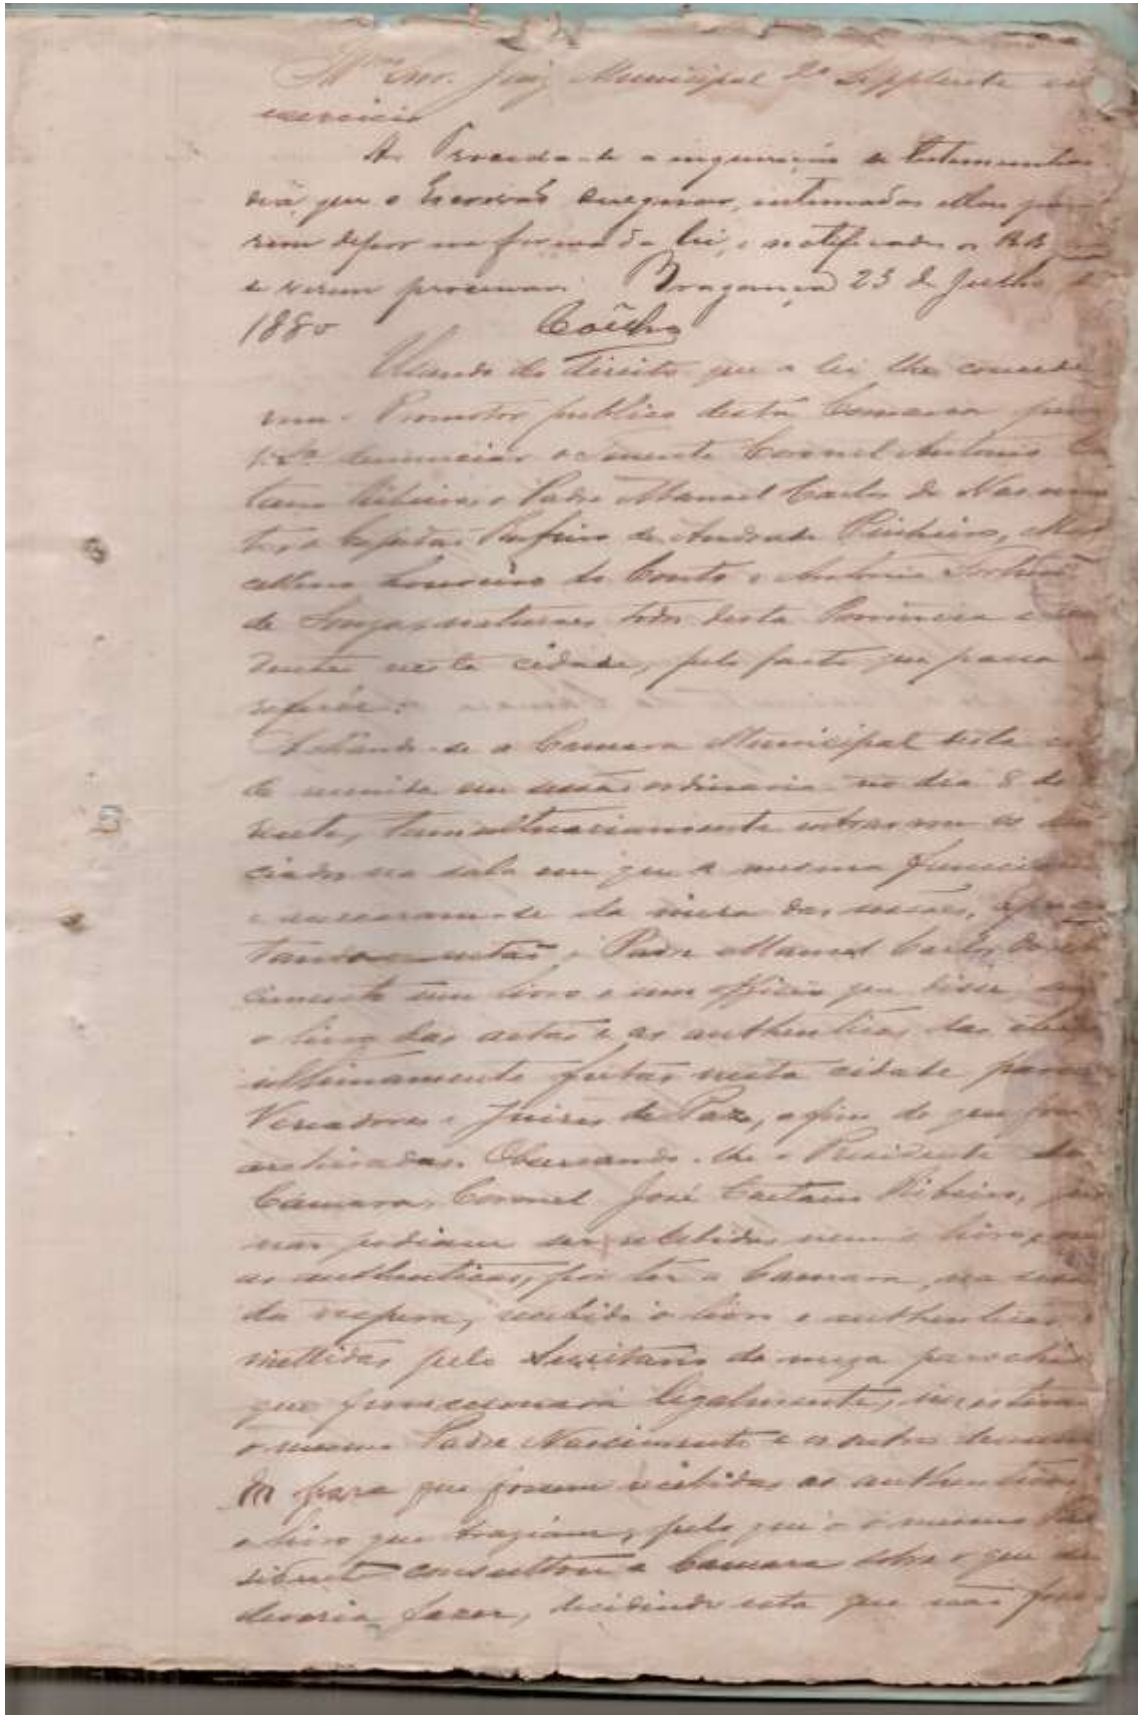 Illmo Snr. Juiz Municipal 2º Supplente em
exercicio
A. Proceda-se a inquirição de testemunhas
dia, que o Escrivaõ designar, intimadas ellas para
rem depor na forma da lei, e notificados os RR
e verem processar. Bragança 23 de Julho de
1880 Coêlho
Usando do direito que a lei lhe concede
vem o Promotor publico desta Comarca perante
V. Sa denunciar o Tenente Coronel Antonio
tano Ribeiro, o Padre Manuel Carlos do Nascimen
to, Rufino de Andrade Pinheiro, Mar
cellino Loureiro do Couto e Antonio
de Souza, naturaes todos desta Provincia e
dentes nesta cidade, pelo facto que passa a
referir:
Achando-se a Camara Municipal desta cida
de reunida em sessaõ ordinaria no dia 8 do
rente, tumultuariamente entraram os denun
ciados na sala em que a mesma funcciona
e acercaram-se da mesa das sessões, apresen
tando entaõ o Padre Manuel Carlos do Nas
cimento um livro e um officio que disse ser
o livro das actas e as authenticas das eleições
ultimamente feitas nesta cidade para
Vereadores e Juizes de Paz, a fim de que fossem
archivadas. Observando-lhe o Presidente da
Camara, Coronel José Caetano Ribeiro, que
nao podiam ser recebidos nem o livro, nem
as authenticas, por ter a Camara, na sessaõ
da vespera, recebido o livro e authenticas re
mettidas pelo Secretario da meza parochial
que funccionara legalmente, insistiram
o mesmo Padre Nascimento e os outros denuncia
dos para que fossem recebidas as authenticas
e livro que traziam, pelo que o mesmo Pre
sidente consultou a Camara sobre o que se
deveria fazer, decidindo esta que naõ fos